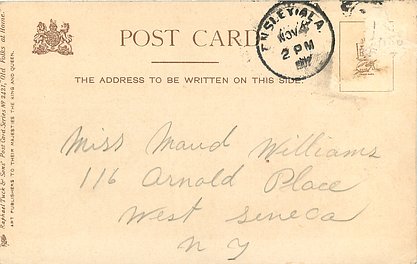 POST CARD
THE ADDRESS TO BE WRITTEN ON THIS SIDE.
ENSLEY, ALA.
NOV 4
2 PM
Raphael Tuck & Sons' Post Card Series No 2421, "Old Folks at Home."
ART PUBLISHERS TO THEIR MAJESTIES THE KING AND QUEEN.
Miss Maud Williams
116 Arnold Place
West Seneca
N Y